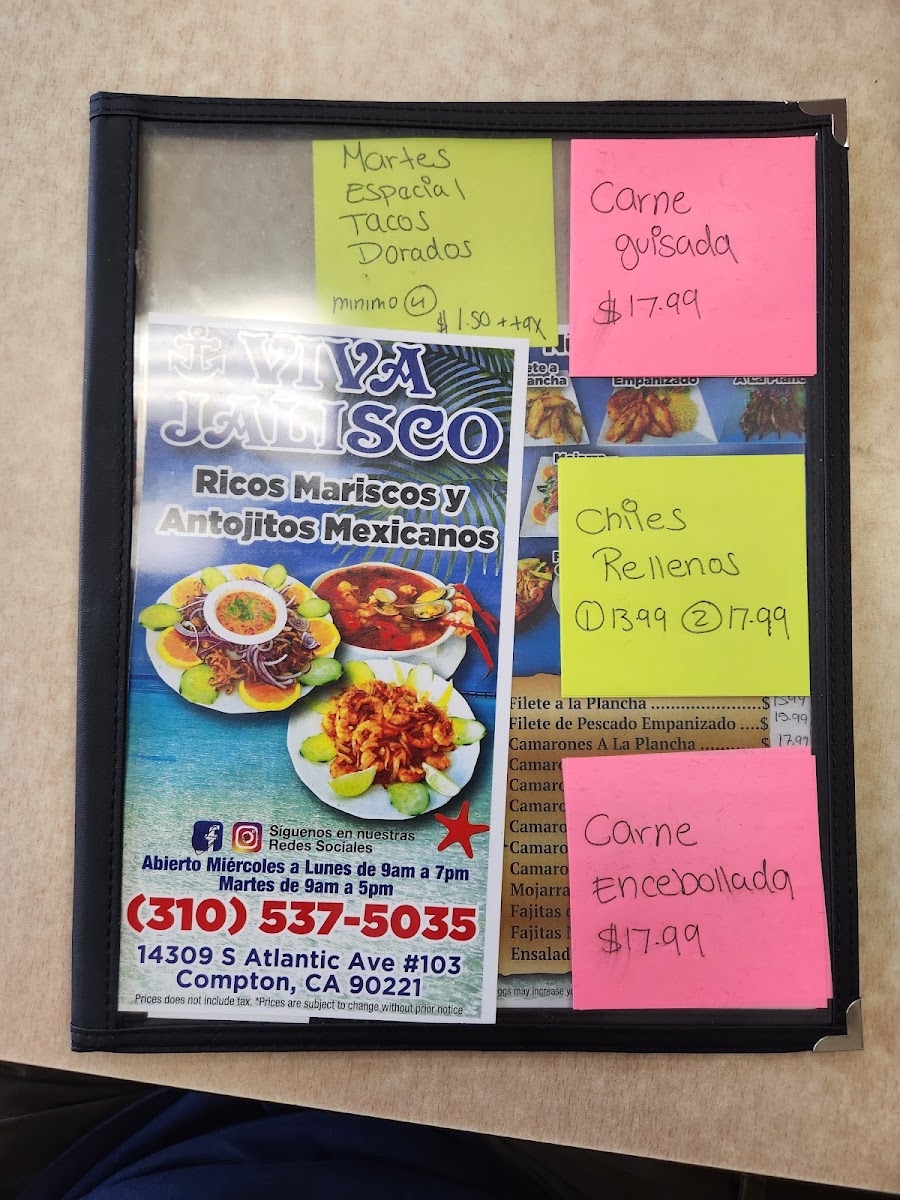 Martes
Especial
Tacos
Dorados
minimo 4
$1.50 + tax
Carne
guisada
$17.99
VIVA
JALISCO
Ricos Mariscos y
Antojitos Mexicanos
Síguenos en nuestras
Redes Sociales
Abierto Miércoles a Lunes de 9am a 7pm
Martes de 9am a 5pm
(310) 537-5035
14309 S Atlantic Ave #103
Compton, CA 90221
Prices does not include tax. *Prices are subject to change without prior notice
Empanizado
Chiles
Rellenos
1 13.99 2 17.99
Filete a la Plancha ......................$ 15.99
Filete de Pescado Empanizado ....$ 15.99
Camarones A La Plancha ..........$ 17.99
Mojarra
Fajitas
Fajitas
Carne
Encebollada
$17.99
may increase